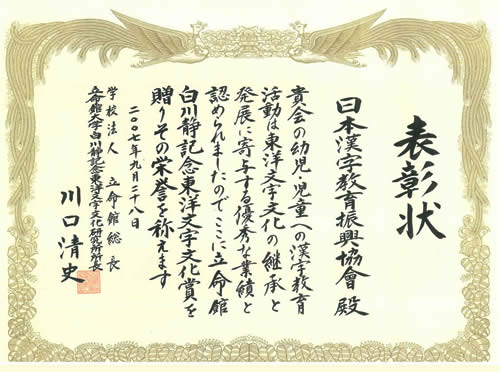 表彰状
日本漢字教育振興協會 殿
貴会の幼児・児童への漢字教育
活動は東洋文字文化の継承と
発展に寄与する優秀な業績と
認められましたのでここに立命館
白川静記念東洋文字文化賞を
贈りその栄誉を称えます
二〇〇七年九月二十八日
学校法人 立命館総長
立命館大学白川静記念東洋文字文化研究所所長
川口清史